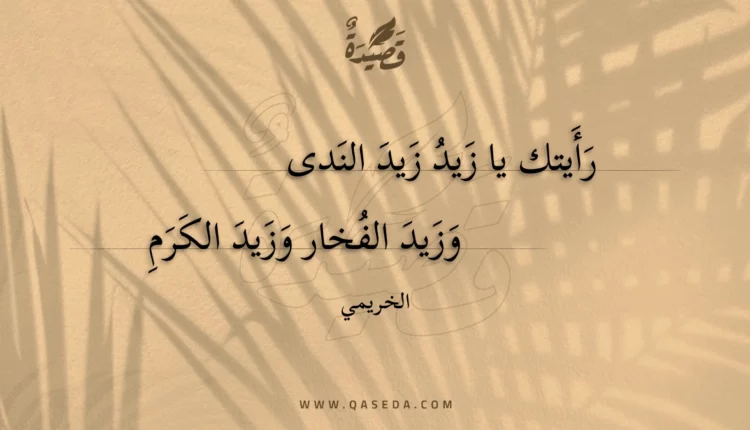 قَصِيْدَةٌ
رَأَيتك يا زَيدُ زَيدَ النَدى
وَزَيدَ الفُخار وَزَيدَ الكَرَمِ
الخريمي
WWW.QASEDA.COM